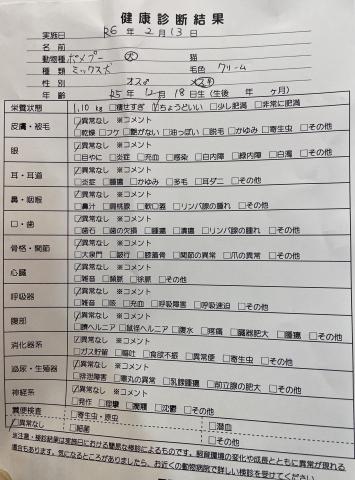 健康診断結果
実施日 R6 年 2 月 13 日
名前
動物種 ポメプー 犬 猫
種類 ミックス犬 毛色 クリーム
性別 オス♂ メス♀
年齢 R5年 12月 18日生(生後 年 ヶ月)
栄養状態 1.10 kg □痩せすぎ ☑ちょうどいい □少し肥満 □非常に肥満
皮膚・被毛 ☑異常なし ※コメント
□乾燥 □フケ □艶がない □油っぽい □脱毛 □かゆみ □寄生虫 □その他
眼 ☑異常なし ※コメント
□目やに □炎症 □充血 □感染 □白内障 □緑内障 □白濁 □その他
耳・耳道 ☑異常なし ※コメント
□炎症 □腫瘍 □かゆみ □多毛 □耳ダニ □その他
鼻・咽喉 ☑異常なし ※コメント
□鼻汁 □扁桃腺 □軟口蓋 □リンパ腺の腫れ □その他
口・歯 ☑異常なし ※コメント
□歯石 □歯の欠損 □腫瘍 □潰瘍 □リンパ腺の腫れ □その他
骨格・関節 ☑異常なし ※コメント
□大泉門 □跛行 □膝蓋骨 □関節の異常 □爪の異常 □その他
心臓 ☑異常なし ※コメント
□雑音 □頻脈 □徐脈 □その他
呼吸器 ☑異常なし ※コメント
□雑音 □咳 □充血 □呼吸障害 □呼吸速迫 □その他
腹部 ☑異常なし ※コメント
□臍ヘルニア □鼠径ヘルニア □腹水 □疼痛 □臓器肥大 □腫瘍 □その他
消化器系 ☑異常なし ※コメント
□ガス貯留 □嘔吐 □食欲不振 □異常便 □寄生虫 □その他
泌尿・生殖器 ☑異常なし ※コメント
□排泄障害 □睾丸の異常 □乳腺腫瘍 □前立腺の肥大 □その他
神経系 ☑異常なし ※コメント
□発作 □痙攣 □麻痺 □沈鬱 □その他
糞便検査 □寄生虫・原虫 □潜血
☑異常なし □細菌 □その他
※注意・検診結果は実施日における簡易な検診によるものです。飼育環境の変化や成長とともに異常が現れる
場合もあります。気になるところがありましたら、お近くの動物病院で詳しい検診を受けてください。